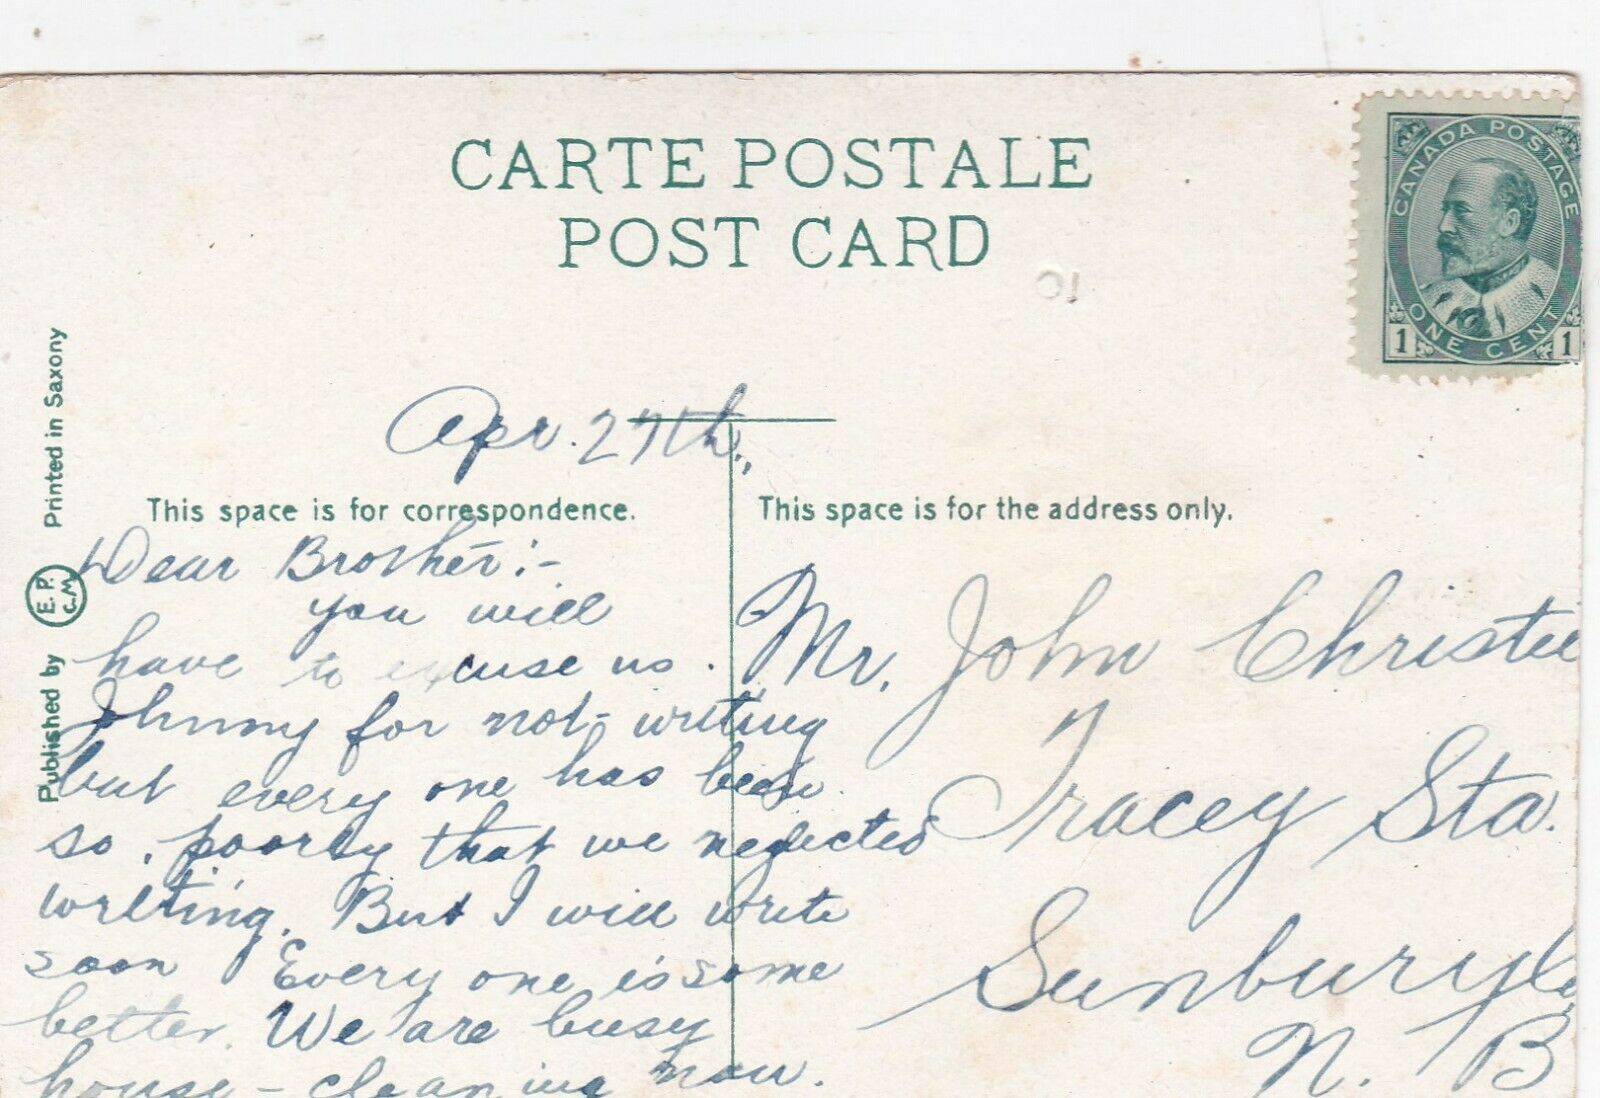 CARTE POSTALE
POST CARD
CANADA POSTAGE
ONE CENT
1 1
10
Printed in Saxony
E.P. C.M
Published by
Apr. 27th.,
This space is for correspondence.
Dear Brother:-
you will
have to excuse us.
Johnny for not writing
but every one has been
so, poorly that we neglected
writing. But I will write
soon Every one is some
better. We are busy
house-cleaning now.
This space is for the address only.
Mr. John Christie
Tracey Sta.
Sunbury Co
N. B